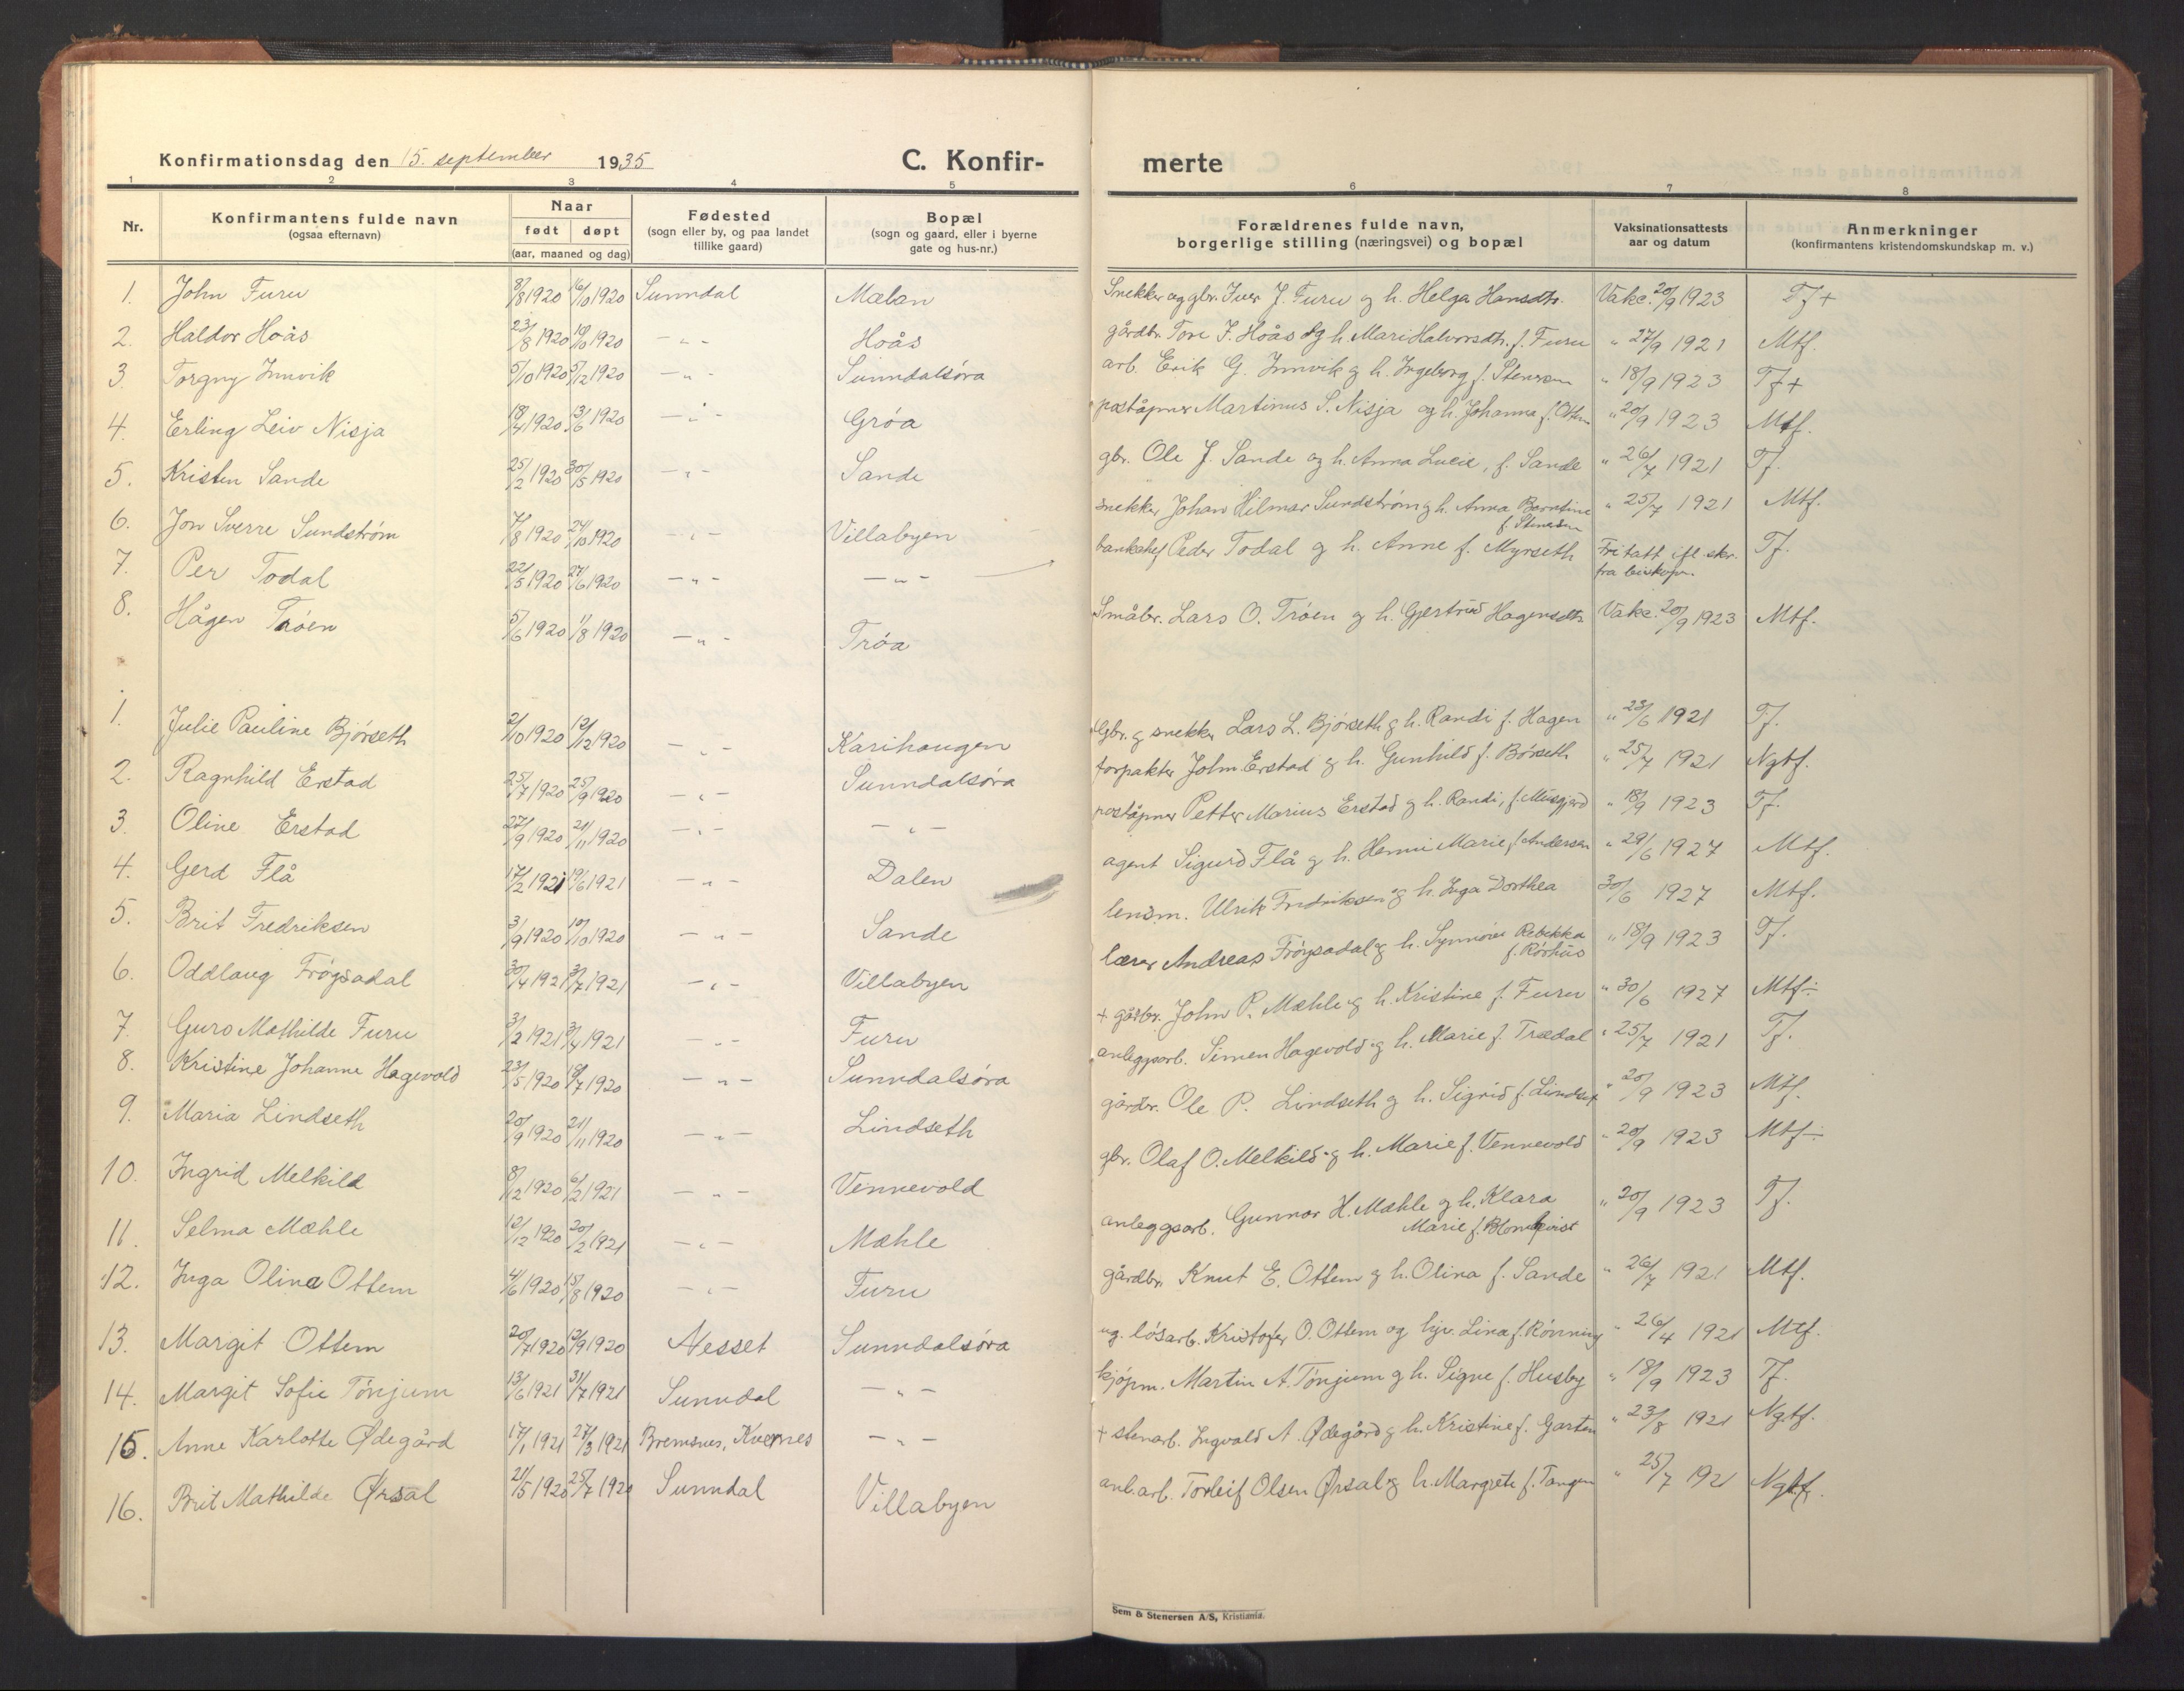 Konfirmationsdag den 15. september 1935 C. Konfir-merte
1 2 3 4 5 6 7 8
Nr. | Konfirmantens fulde navn (ogsaa efternavn) | Naar født døpt (aar, maaned og dag) | Fødested (sogn eller by, og paa landet tillike gaard) | Bopæl (sogn og gaard, eller i byerne gate og hus-nr.) | Forældrenes fulde navn, borgerlige stilling (næringsvei) og bopæl | Vaksinationsattests aar og datum | Anmerkninger (konfirmantens kristendomskundskap m. v.)
1. John Furu 8/8 1920 16/10 1920 Sunndal Mælan Snekker og gbr. Iver J. Furu og h. Helga Hansdtr. Vakc. 20/9 1923 Tf +
2. Haldor Hoås 23/8 1920 10/10 1920 — " - Hoås gårdbr. Tore J. Hoås og h. Mari Halvorsdtr. f. Furu " 27/9 1921 Mtf.
3. Torgny Innvik 5/10 1920 5/12 1920 — " - Sunndalsøra arb. Erik G. Innvik og h. Ingeborg f. Stensen " 18/9 1923 Tf +
4. Erling Leiv Nisja 18/4 1920 13/6 1920 — " - Grøa poståpner Martinus S. Nisja og h. Johanna f. Ottem " 20/9 1923 Mtf.
5. Kristen Sande 25/2 1920 30/5 1920 — " - Sande gbr. Ole J. Sande og h. Anna Lucie, f. Sande " 26/7 1921 Tf.
6. Jon Sverre Sundstrøm 7/8 1920 24/10 1920 — " - Villabyen snekker Johan Hilmar Sundstrøm og h. Anna Berntine f. Stensen " 25/7 1921 Mtf.
7. Per Todal 22/5 1920 27/6 1920 — " - — " - banksjef Peder Todal og h. Anne f. Myrseth Fritatt ifl. skr. fra biskopen. Tf.
8. Hågen Trøen 5/6 1920 1/8 1920 — " - Trøa Småbr. Lars O. Trøen og h. Gjertrud Hagensdtr. Vakc. 20/9 1923 Mtf.
1. Julie Pauline Bjørseth 2/10 1920 12/12 1920 — " - Karihaugen Gbr. og snekker Lars L. Bjørseth og h. Randi f. Hagen " 23/6 1921 Tf.
2. Ragnhild Erstad 25/7 1920 25/9 1920 — " - Sunndalsøra forpakter John Erstad og h. Gunhild f. Børseth " 25/7 1921 Ngtf.
3. Oline Erstad 27/9 1920 21/11 1920 — " - — " - poståpner Petter Marius Erstad og h. Randi, f. Musgjerd " 18/9 1923 Tf.
4. Gerd Flå 17/2 1921 19/6 1921 — " - Dalen agent Sigurd Flå og h. Henni Marie, f. Andersen " 29/6 1927 Mtf.
5. Brit Fredriksen 3/9 1920 10/10 1920 — " - Sande lensm. Ulrik Fredriksen og h. Inga Dorthea 30/6 1927 Mtf.
6. Oddlaug Frøysadal 30/4 1921 3/7 1921 — " - Villabyen lærer Andreas Frøysadal og h. Synnøve Rebekka f. Rørhus " 18/9 1923 Tf.
7. Guro Mathilde Furu 3/2 1921 3/4 1921 — " - Furu + gårbr. John P. Mæhle og h. Kristine f. Furu " 30/6 1927 Mtf ÷
8. Kristine Johanne Hagevold 23/5 1920 18/7 1920 — " - Sunndalsøra anleggsarb. Simen Hagevold og h. Marie f. Trædal " 25/7 1921 Tf.
9. Maria Lindseth 20/9 1920 21/11 1920 — " - Lindseth gårdbr. Ole P. Lindseth og h. Sigrid f. Lindset " 20/9 1923 Mtf.
10. Ingrid Melkild 8/12 1920 6/2 1921 — " - Vennevold gbr. Olaf O. Melkild og h. Marie f. Vennevold " 20/9 1923 Mtf ÷
11. Selma Mæhle 12/12 1920 20/2 1921 — " - Mæhle anleggsarb. Gunnar H. Mæhle og h. Klara Marie f. Blomkvist " 20/9 1923 Tf.
12. Inga Olina Ottem 4/6 1920 15/8 1920 — " - Furu gårdbr. Knut E. Ottem og h. Olina f. Sande " 26/7 1921 Mtf.
13. Margit Ottem 20/7 1920 12/9 1920 Nesset Sunndalsøra ug. løsarb. Kristofer O. Ottem og hjv. Lina f. Rønning " 26/4 1921 Mtf.
14. Margit Sofie Tønjum 13/6 1921 31/7 1921 Sunndal — " - kjøpm. Martin A. Tønjum og h. Signe f. Husby " 18/9 1923 Tf.
15. Anne Karlotte Ødegård 17/1 1921 27/3 1921 Bremsnes, Kvernes — " - + stenarb. Ingvald A. Ødegård og h. Kristine f. Garten " 23/8 1921 Ngtf.
16. Brit Mathilde Ørsal 21/5 1920 25/7 1920 Sunndal Villabyen anl.arb. Torleif Olsen Ørsal og h. Margrete f. Tangen " 25/7 1921 Ngtf.
Sem & Stenersen A/S, Kristiania.